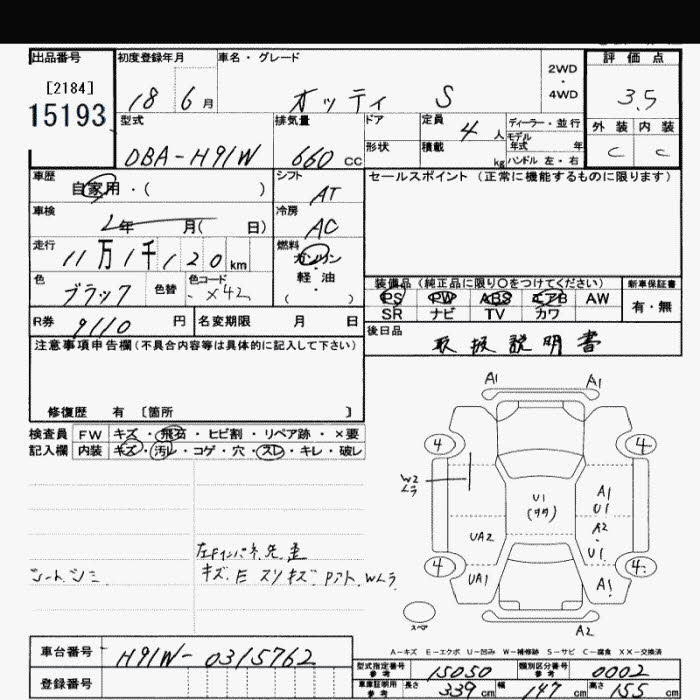 出品番号 初度登録年月 車名・グレード 2WD・4WD 評価点
[2184]
15193
18 6月 オッティ S 3.5
型式 排気量 ドア 定員 4人 ディーラー・並行 外装 内装
形状 積載 kg モデル年式 年 ハンドル 左・右
DBA-H91W 660cc C C
車歴 自家用・( ) シフト AT セールスポイント (正常に機能するものに限ります)
車検 年 月( 日) 冷房 AC
走行 11万1千120km 燃料 ガソリン・軽油 ( )
色 ブラック 色替 色コード X42
装備品 (純正品に限り○をつけてください) 新車保証書
PS PW ABS エアB AW 有・無
SR ナビ TV カワ
R券 9110円 名変期限 月 日
後日品 取扱説明書
注意事項申告欄(不具合内容等は具体的に記入して下さい)
修復歴 有 [箇所 ]
検査員 FW キズ・飛石・ヒビ割・リペア跡・×要
記入欄 内装 キズ・汚レ・コゲ・穴・スレ・キレ・破レ
A1 A1
4 4
W2
ムラ
U1 A1
U1
UA2 A2
U1
4 4
UA1 A1
A2
シートシミ
キズ E スリキズ Pアト、Wムラ
スペア
A-キズ E-エクボ U-凹み W-補修跡 S-サビ C-腐食 XX-交換済
車台番号 H91W-0315762
登録番号
型式指定番号 参考 15050 類別区分番号 参考 0002
車庫証明用 参考 長さ 339cm 幅 147cm 高さ 155cm